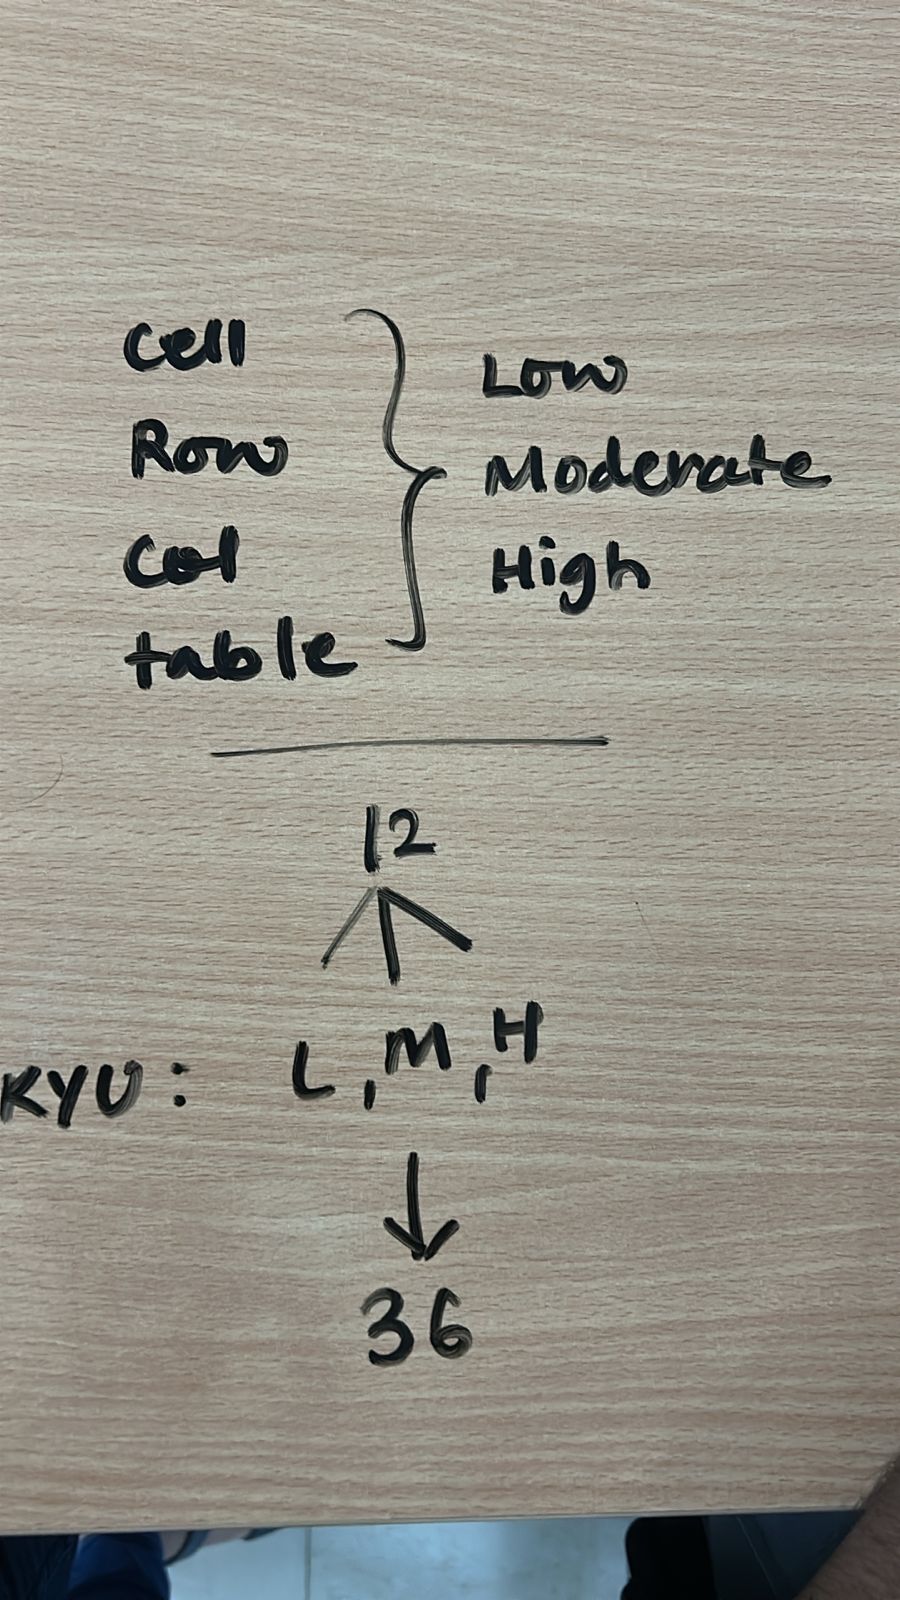 Cell
Row
Col
table
Low
Moderate
High
12
KYU: L, M, H
36